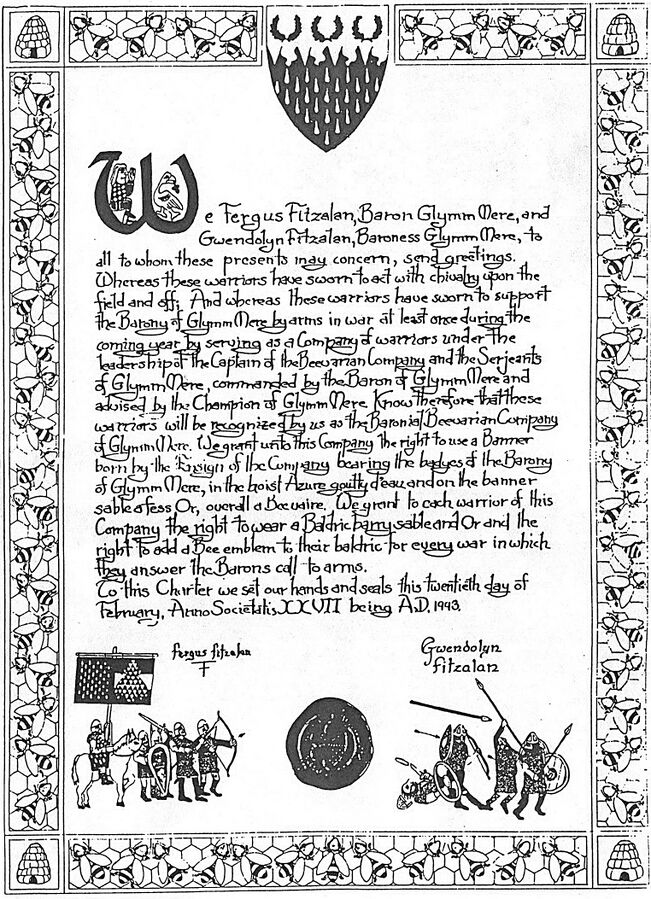 We Fergus Fitzalan, Baron Glymm Mere, and
Gwendolyn Fitzalan, Baroness Glymm Mere, to
all to whom these presents may concern, send greetings.
Whereas these warriors have sworn to act with chivalry upon the
field and off; And whereas these warriors have sworn to support
the Barony of Glymm Mere by arms in war at least once during the
coming year by serving as a Company of warriors under the
leadership of the Captain of the Beewarian Company and the Serjeants
of Glymm Mere, commanded by the Baron of Glymm Mere and
advised by the Champion of Glymm Mere. Know therefore that these
warriors will be recognized by us as the Baronial Beevarian Company
of Glymm Mere. We grant unto this Company the right to use a Banner
born by the Ensign of the Company bearing the badges of the Barony
of Glymm Mere, in the hoist Azure goutty d'eau and on the banner
sable a fess Or, overall a Beevaire. We grant to each warrior of this
Company the right to wear a Baldric barry sable and Or and the
right to add a Bee emblem to their baldric for every war in which
they answer the Barons call to arms.
To this Charter we set our hands and seals this twentieth day of
February, Anno Societatis XXVII being A.D. 1993.
fergus fitzalan
Gwendolyn
fitzalan